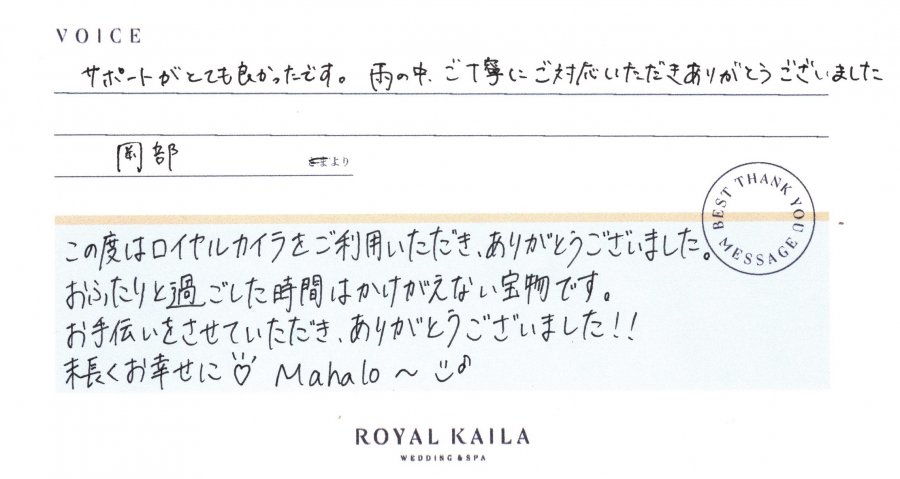 VOICE
サポートがとても良かったです。 雨の中、ご丁寧にご対応いただきありがとうございました
岡部
さまより
BEST THANK YOU MESSAGE
この度はロイヤルカイラをご利用いただき、ありがとうございました。
おふたりと過ごした時間はかけがえない宝物です。
お手伝いをさせていただき、ありがとうございました!!
末長くお幸せに♡ Mahalo ~
ROYAL KAILA
WEDDING & SPA